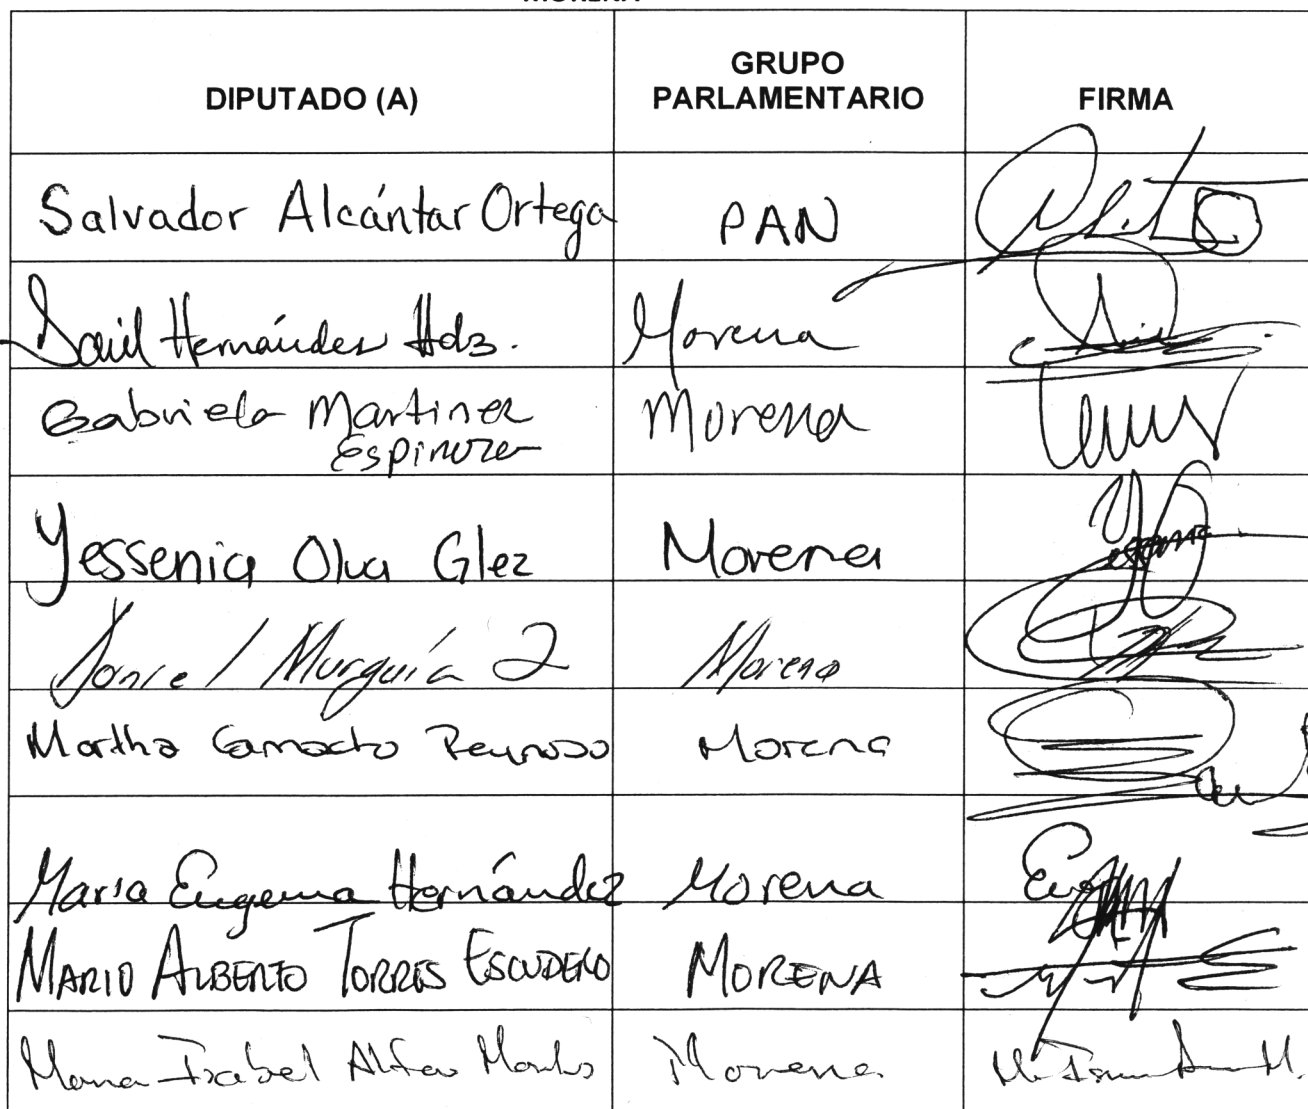 MORENA
DIPUTADO (A)
GRUPO
PARLAMENTARIO
FIRMA
Salvador Alcántar Ortega
PAN
Saúl Hernández Hdz.
Morena
Gabriela Martinez
Espinoza
Morena
Yessenia Olua Glez
Morena
Murguía
Morena
Martha Camacho Reynoso
Morena
Maria Eugenia Hernández
Morena
MARIO ALBERTO TORRES ESCUDERO
MORENA
Maria Isabel Alfaro
Morena